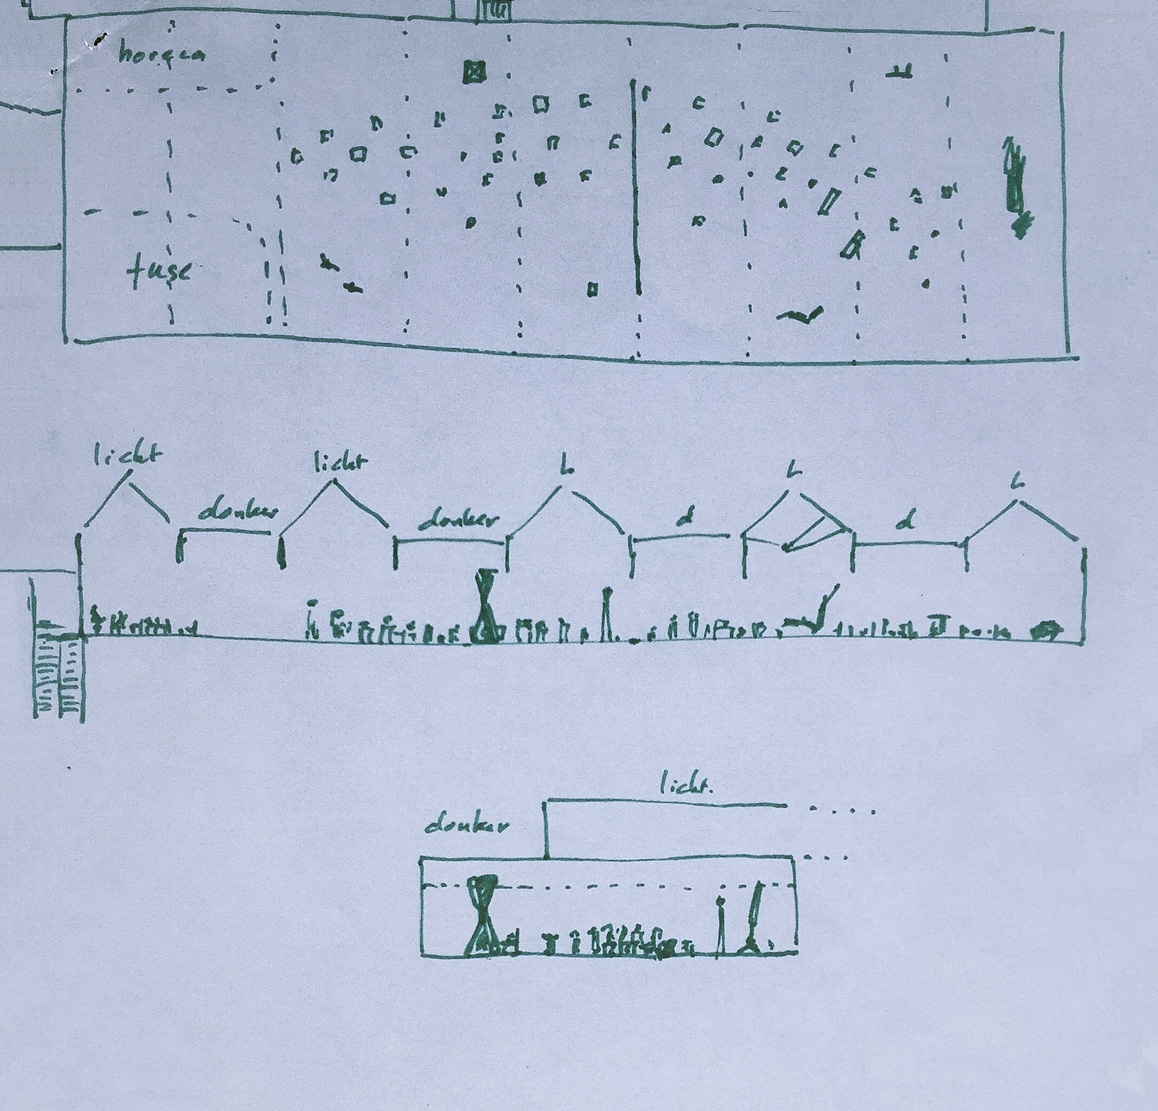 horeca
fuse
licht
licht
L
L
L
donker
donker
d
d
licht.
donker